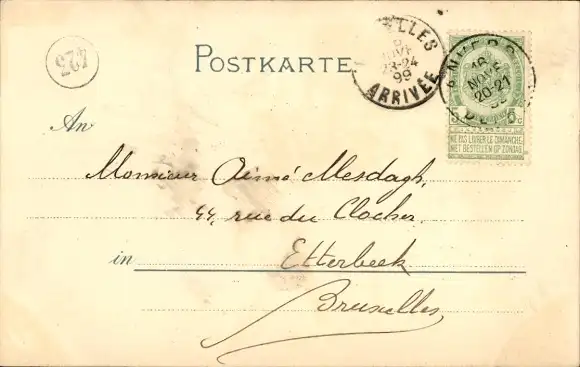 227
POSTKARTE
ARRIVÉE
23-24
99
ANVERS
16
NOVE
20-21
NE PAS LIVRER LE DIMANCHE
NIET BESTELLEN OP ZONDAG
An
Monsieur Aimé Mesdagh,
44, rue du Clocher
in Etterbeek
Bruxelles